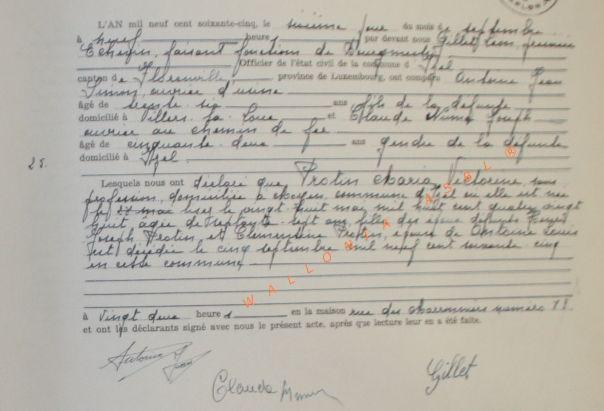 L'AN mil neuf cent soixante-cinq, le sixième jour du mois de septembre
à neuf heure par devant nous Gillet Léon, premier
Echevin, faisant fonctions de Bourgmestre
Officier de l'état civil de la commune d'Izel
canton de Florenville province de Luxembourg, ont comparu Antoine Jean
Simon, ouvrier d'usine
âgé de trente six ans fils de la défunte
domicilié à Villers la Loue et Claude Nims Joseph
ouvrier au chemin de fer
âgé de cinquante deux ans gendre de la défunte
domicilié à Izel.
25.
Lesquels nous ont déclaré que Protin Maria Victorine, sans
profession, domiciliée à Moyen, commune d'Izel où elle est née
le vingt huit mai mil huit cent quatre vingt
huit, âgée de septante sept ans, fille des époux défunts
Joseph Protin et Clémentine, épouse de Antoine Louis
est décédée le cinq septembre mil neuf cent soixante cinq
en cette commune
à vingt deux heures en la maison rue des numéro
et ont les déclarants signé avec nous le présent acte, après que lecture leur en a été faite.
Antoine Jean
Claude
Gillet
WALLONIA ASBL ®